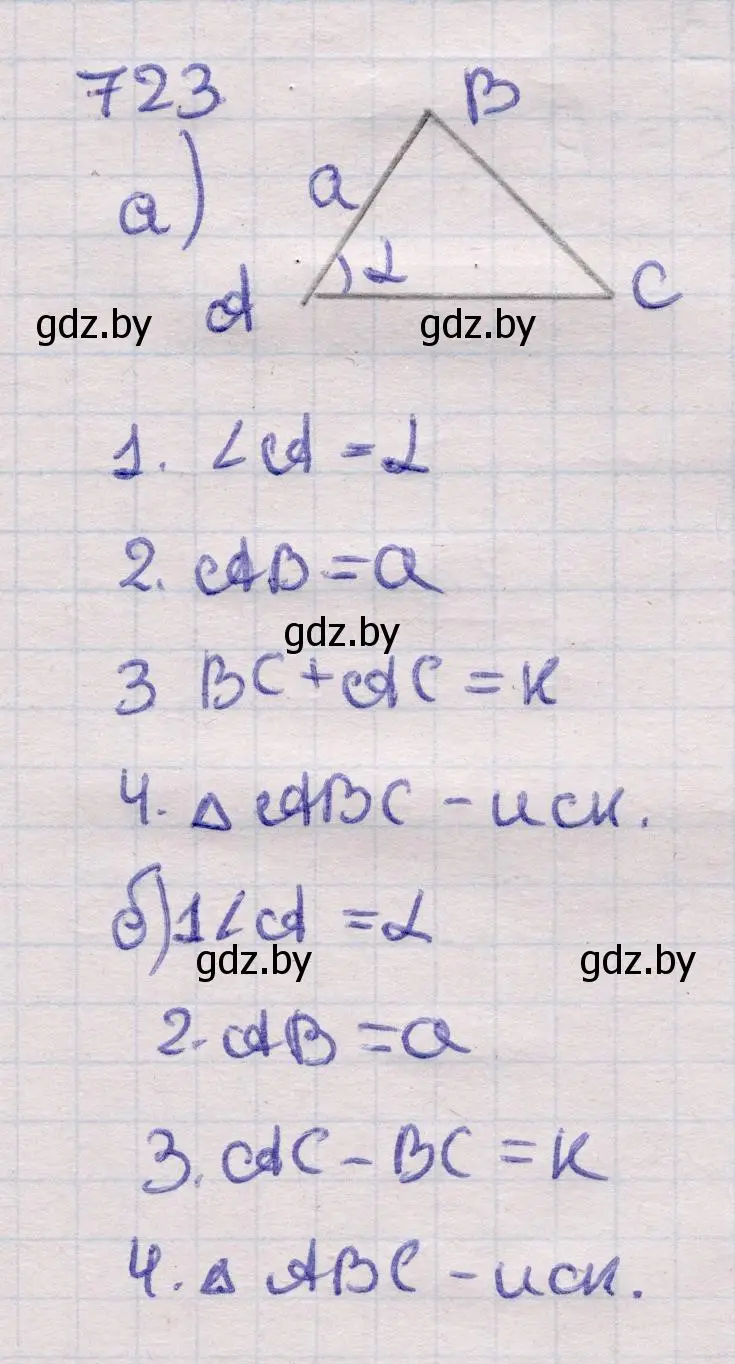 723
B
а)
a
α
A
C
gdz.by
gdz.by
1. ∠A = α
2. AB = a
gdz.by
3 BC + AC = к
4. △ ABC - иск.
б) 1 ∠A = α
gdz.by
gdz.by
2. AB = a
3. AC - BC = к
4. △ ABC - иск.